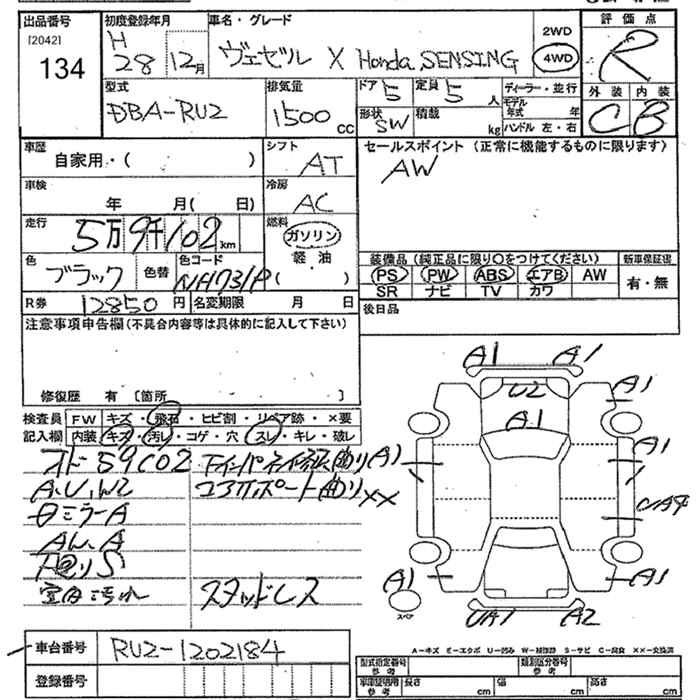 出品番号 初度登録年月 車名・グレード 2WD 評価点
[2042] H
134 28 12月 ヴェゼル X Honda SENSING 4WD R
型式 排気量 ドア 5 定員 5人 ディーラー・並行 外装 内装
DBA-RU2 1500cc 形状 SW 積載 kg モデル年式 年 C B
ハンドル 左・右
車歴 シフト セールスポイント (正常に機能するものに限ります)
自家用・( ) AT AW
車検 冷房
年 月( 日) AC
走行 燃料
5万9千102km ガソリン
色 色替 色コード 軽油 装備品 (純正品に限り○をつけてください) 新車保証書
ブラック NH731P ( ) PS PW ABS エアB AW 有・無
SR ナビ TV カワ
R券 12850円 名変期限 月 日 後日品
注意事項申告欄(不具合内容等は具体的に記入して下さい)
修復歴 有 [箇所 ]
A1 A1
U2 A1
A1
検査員 FW キズ・飛石・ヒビ割・リペア跡・×要
記入欄 内装 キズ・汚レ・コゲ・穴・スレ・キレ・破レ
A1
オド 59102 (A1)
A.U.W2 コアサポート曲り××
日ミラーA
AW.A
下回りS A1 A1
室内汚れ スタッドレス
スペア
UA1 A2
車台番号 RU2-1202184
A-キズ E-エクボ U-凹み W-補修跡 S-サビ C-腐食 ××-交換済
登録番号 型式指定番号 参考 類別区分番号 参考
車庫証明用 参考 長さ cm 幅 cm 高さ cm